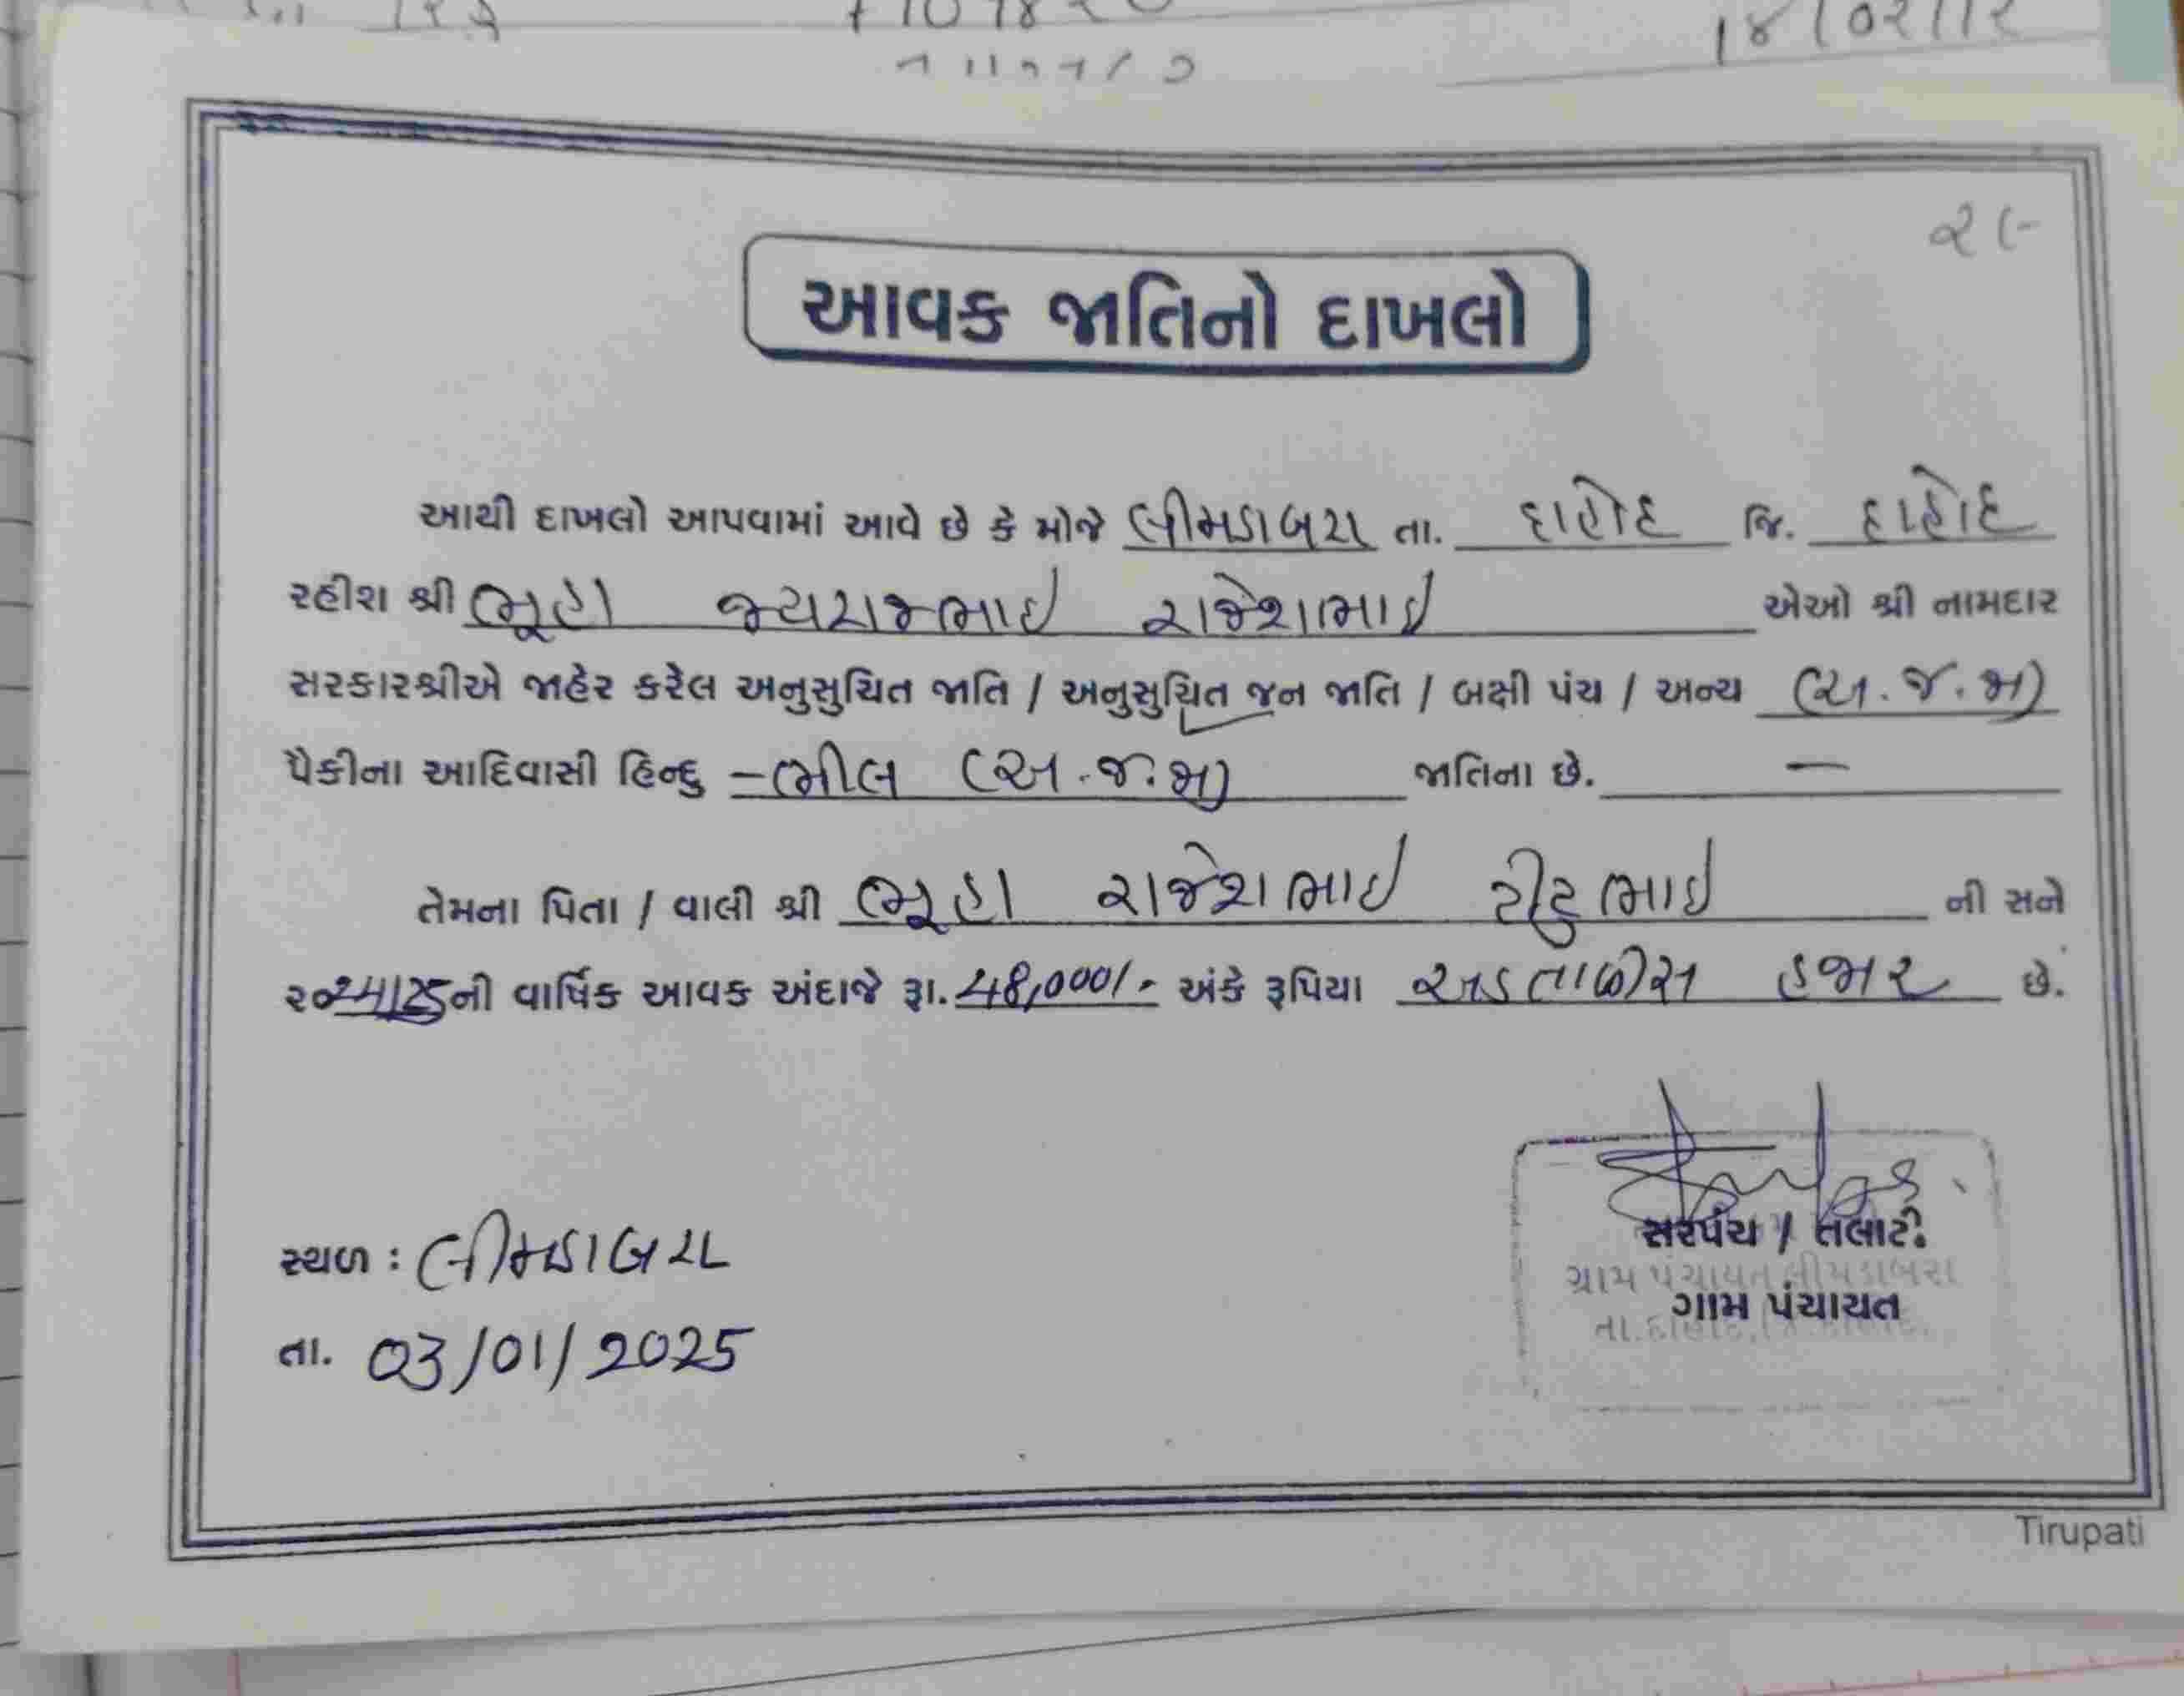 ૨૯
આવક જાતિનો દાખલો
આથી દાખલો આપવામાં આવે છે કે મોજે લીમડાબરા તા. દાહોદ જિ. દાહોદ
રહીશ શ્રી ભૂહા જયરાજભાઇ રાજેશભાઇ એઓ શ્રી નામદાર
સરકારશ્રીએ જાહેર કરેલ અનુસુચિત જાતિ / અનુસુચિત જન જાતિ / બક્ષી પંચ / અન્ય (અ.જ.જા)
પૈકીના આદિવાસી હિન્દુ - ભીલ (અ.જ.જા) જાતિના છે. —
તેમના પિતા / વાલી શ્રી ભૂહા રાજેશભાઇ ટીટુભાઇ ની સને
૨૦24/25ની વાર્ષિક આવક અંદાજે રૂા. 48,000/- અંકે રૂપિયા અડતાળીસ હજાર છે.
સરપંચ / તલાટી
સ્થળ : લીમડાબરા
ગ્રામ પંચાયત લીમડાબરા
ગામ પંચાયત
તા. દાહોદ, જિ. દાહોદ.
તા. 03/01/2025
Tirupati